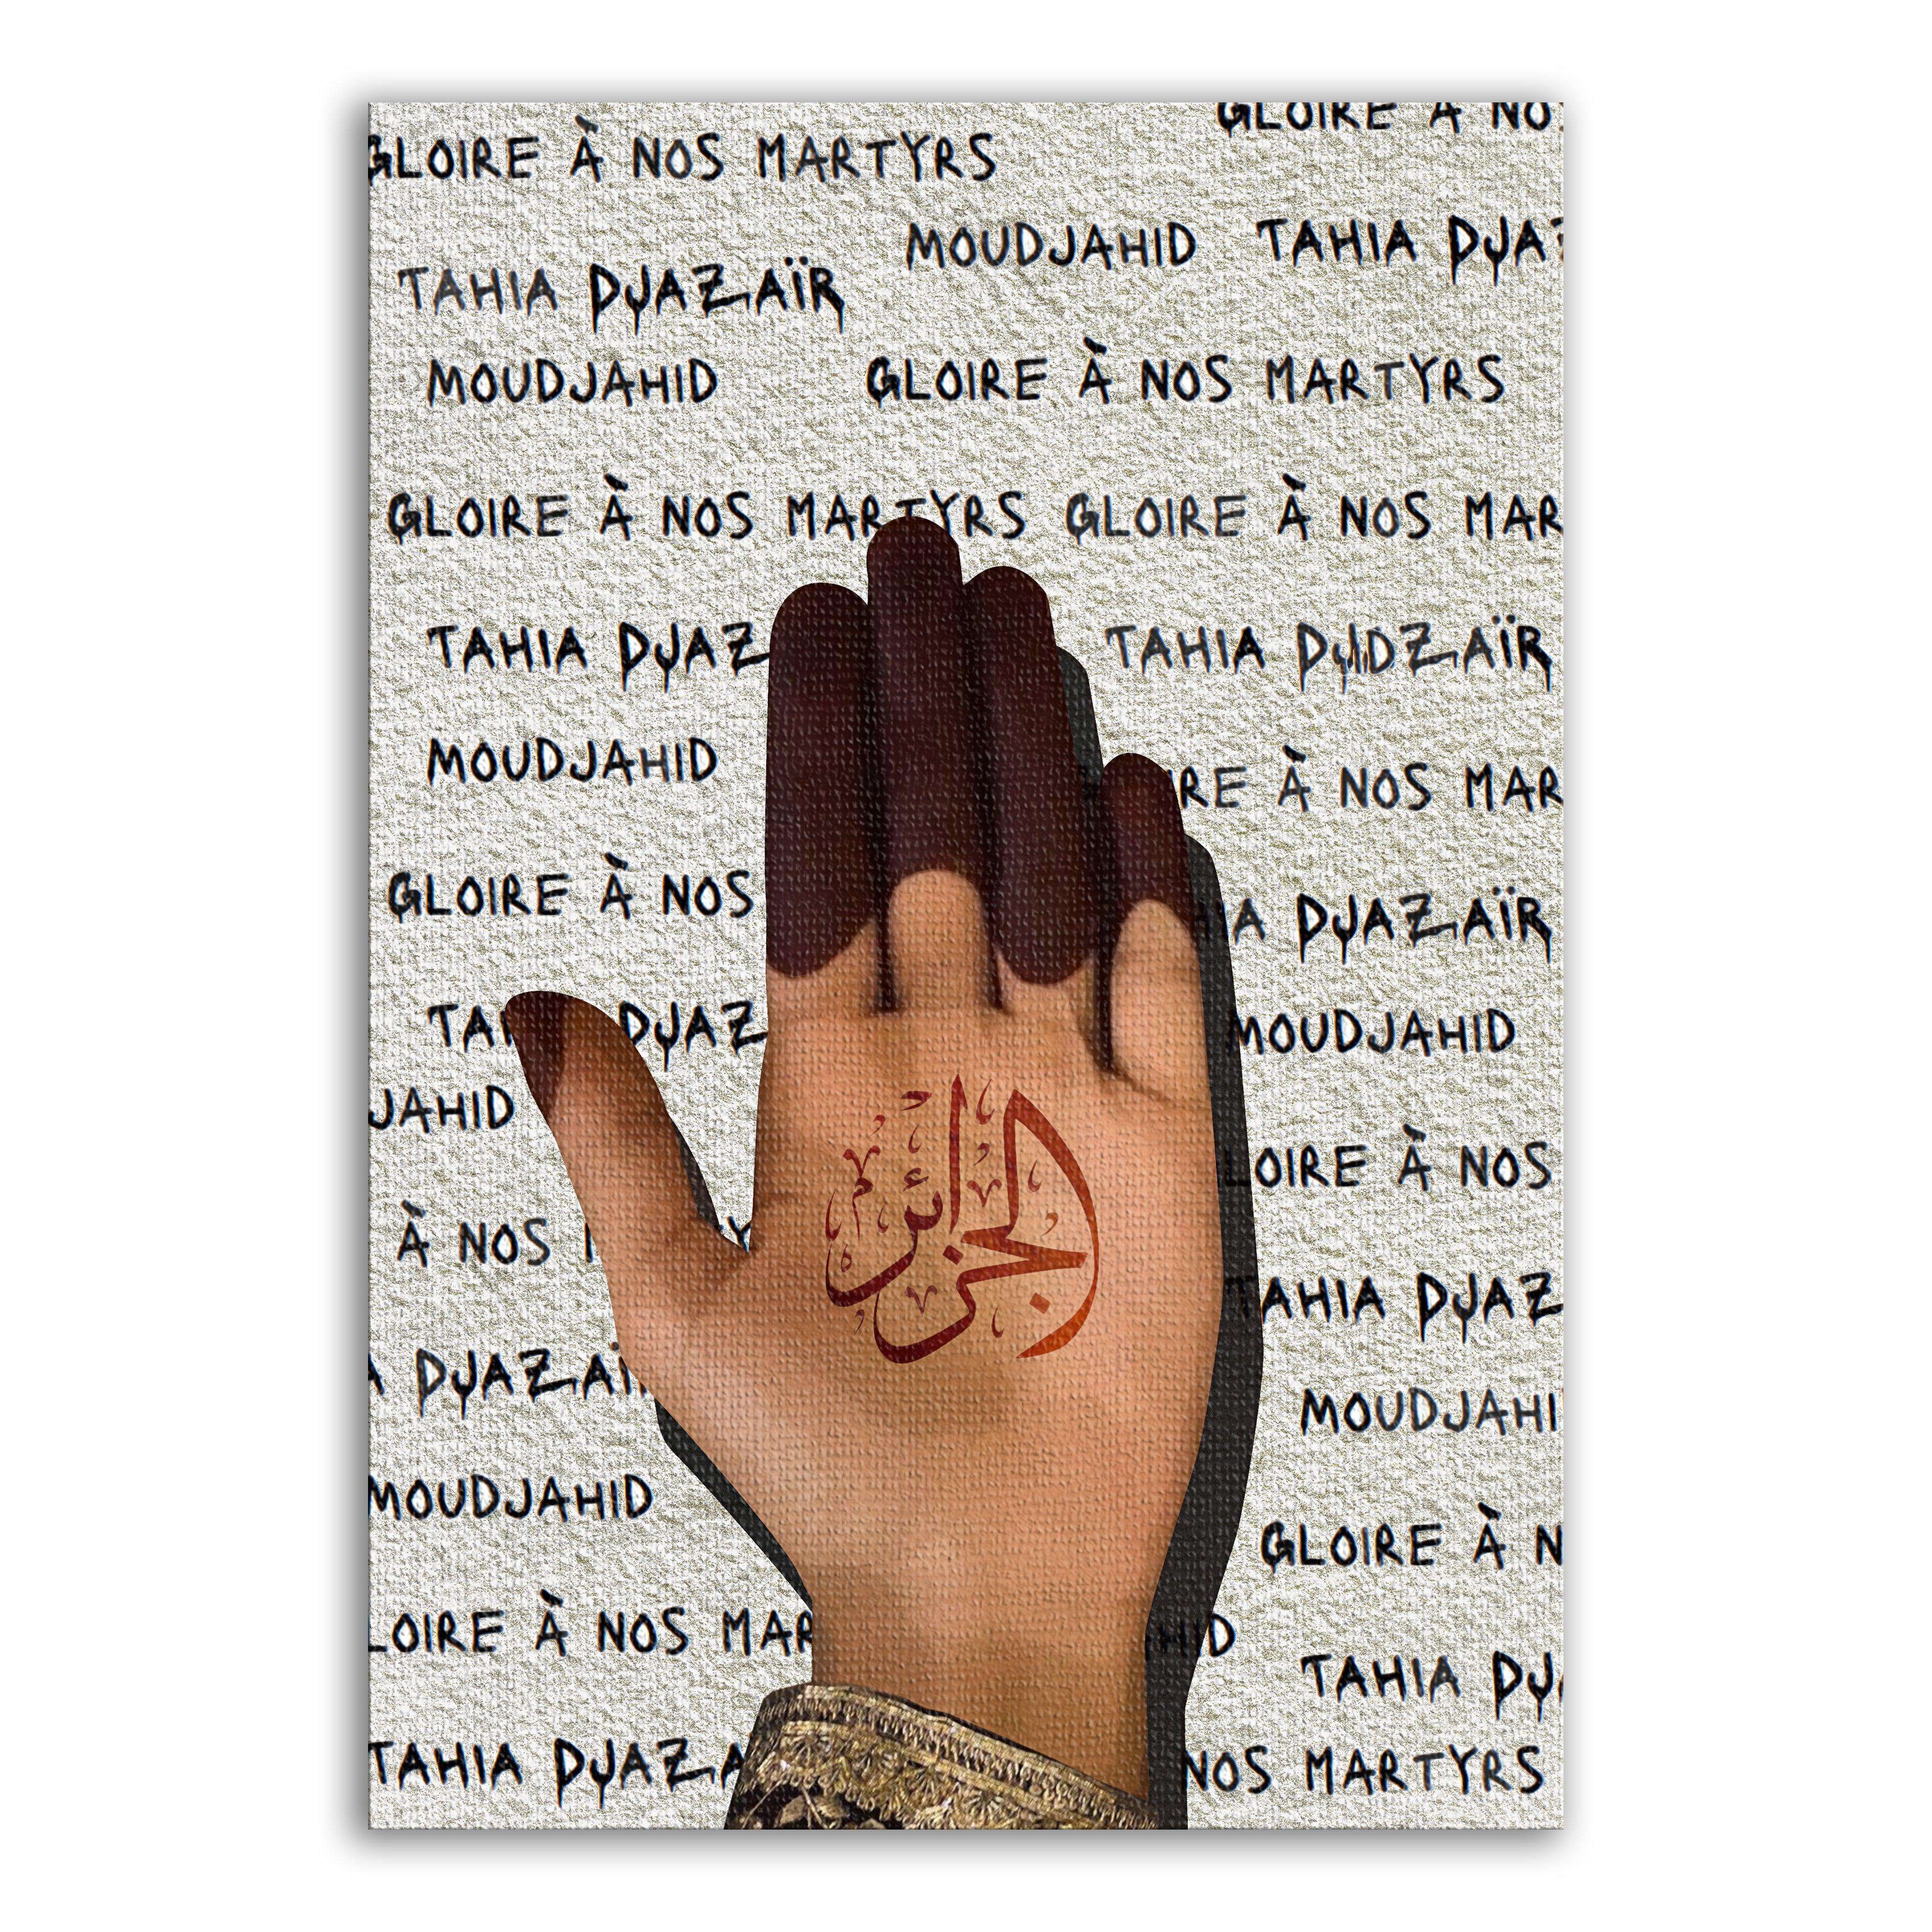 GLOIRE À NO
GLOIRE À NOS MARTYRS
MOUDJAHID TAHIA DJAZ
TAHIA DJAZAÏR
MOUDJAHID GLOIRE À NOS MARTYRS
GLOIRE À NOS MARTYRS GLOIRE À NOS MAR
TAHIA DJAZ TAHIA DJDZAÏR
MOUDJAHID
RE À NOS MAR
GLOIRE À NOS
A DJAZAÏR
TA DJAZ
MOUDJAHID
JAHID
الجزائر
LOIRE À NOS
À NOS
TAHIA DJAZ
A DJAZAÏ
MOUDJAHI
MOUDJAHID
GLOIRE À N
LOIRE À NOS MAR HID
TAHIA DJ
TAHIA DJAZA NOS MARTYRS